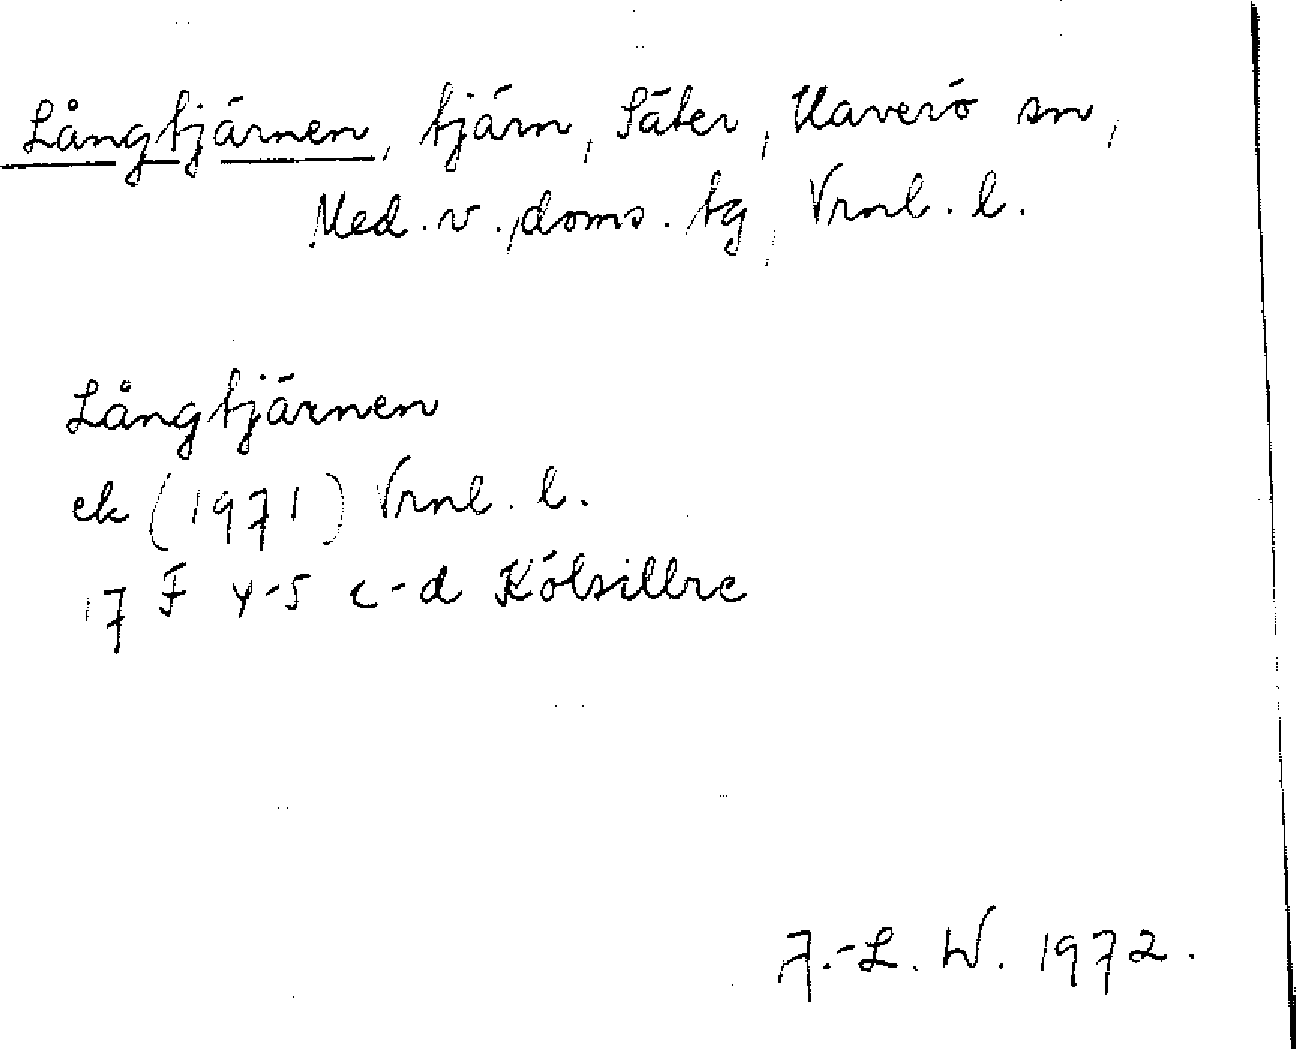 Långtjärnen, tjärn, Säter, Haverö sn,
Med. v., doms. tg, Vrnl. l.
Långtjärnen
ek (1971) Vrnl. l.
17 F 4-5 c-d Kölsillre
J.-L. W. 1972.